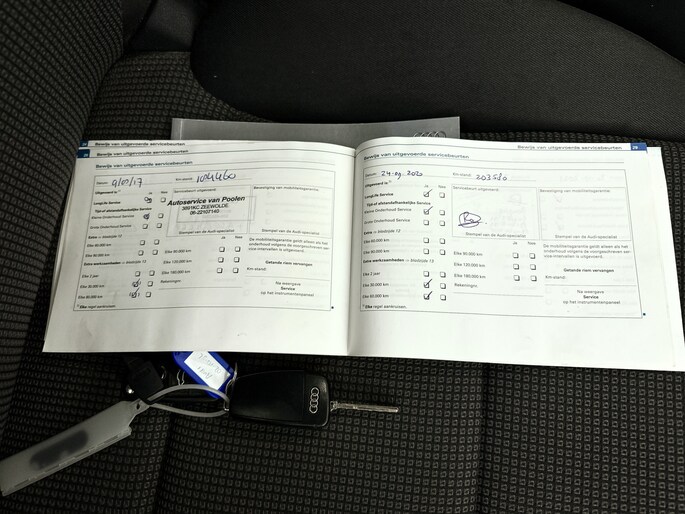 Bewijs van uitgevoerde servicebeurten
Bewijs van uitgevoerde servicebeurten
Bewijs van uitgevoerde servicebeurten
Datum:
104460
Uitgevoerd is
Ja
Nee
Servicebeurt uitgevoerd
Bevestiging van mobiliteitsgarantie
LongLife Service
Tijd-of afstandsafhankelijke Service
Kleine Onderhoud Service
Grote Onderhoud Service
Autoservice van Poolen
3891KC ZEEWOLDE
06-22107140
Stempel van de Audi-specialist
Stempel van de Audi-specialist
Ja
Nee
Ja
Nee
Elke 60.000 km
Elke 90.000 km
Elke 90.000 km
Elke 120.000 km
Elke 180.000 km
Extra werkzaamheden
Elke 2 jaar
Elke 30.000 km
Elke 60.000 km
Rekeningnr.
Km-stand:
Getande riem vervangen
Na weergave
Service
op het instrumentenpaneel
Elke regel aankruisen.
Bewijs van uitgevoerde servicebeurten
29
Bewijs van uitgevoerde servicebeurten
Datum: 24-09-2020
Km-stand: 203580
Uitgevoerd is
Ja
Nee
Servicebeurt uitgevoerd
Bevestiging van mobiliteitsgarantie
LongLife Service
Tijd-of afstandsafhankelijke Service
Kleine Onderhoud Service
Grote Onderhoud Service
Stempel van de Audi-specialist
Stempel van de Audi-specialist
Ja
Nee
Ja
Nee
De mobiliteitsgarantie geldt alleen als het
onderhoud volgens de voorgeschreven ser-
vice-intervallen is uitgevoerd.
Elke 60.000 km
Elke 90.000 km
Elke 90.000 km
Elke 120.000 km
Elke 180.000 km
Extra werkzaamheden
Getande riem vervangen
Km-stand:
Elke 2 jaar
Elke 30.000 km
Elke 60.000 km
Rekeningnr.
Na weergave
Service
op het instrumentenpaneel
Elke regel aankruisen.